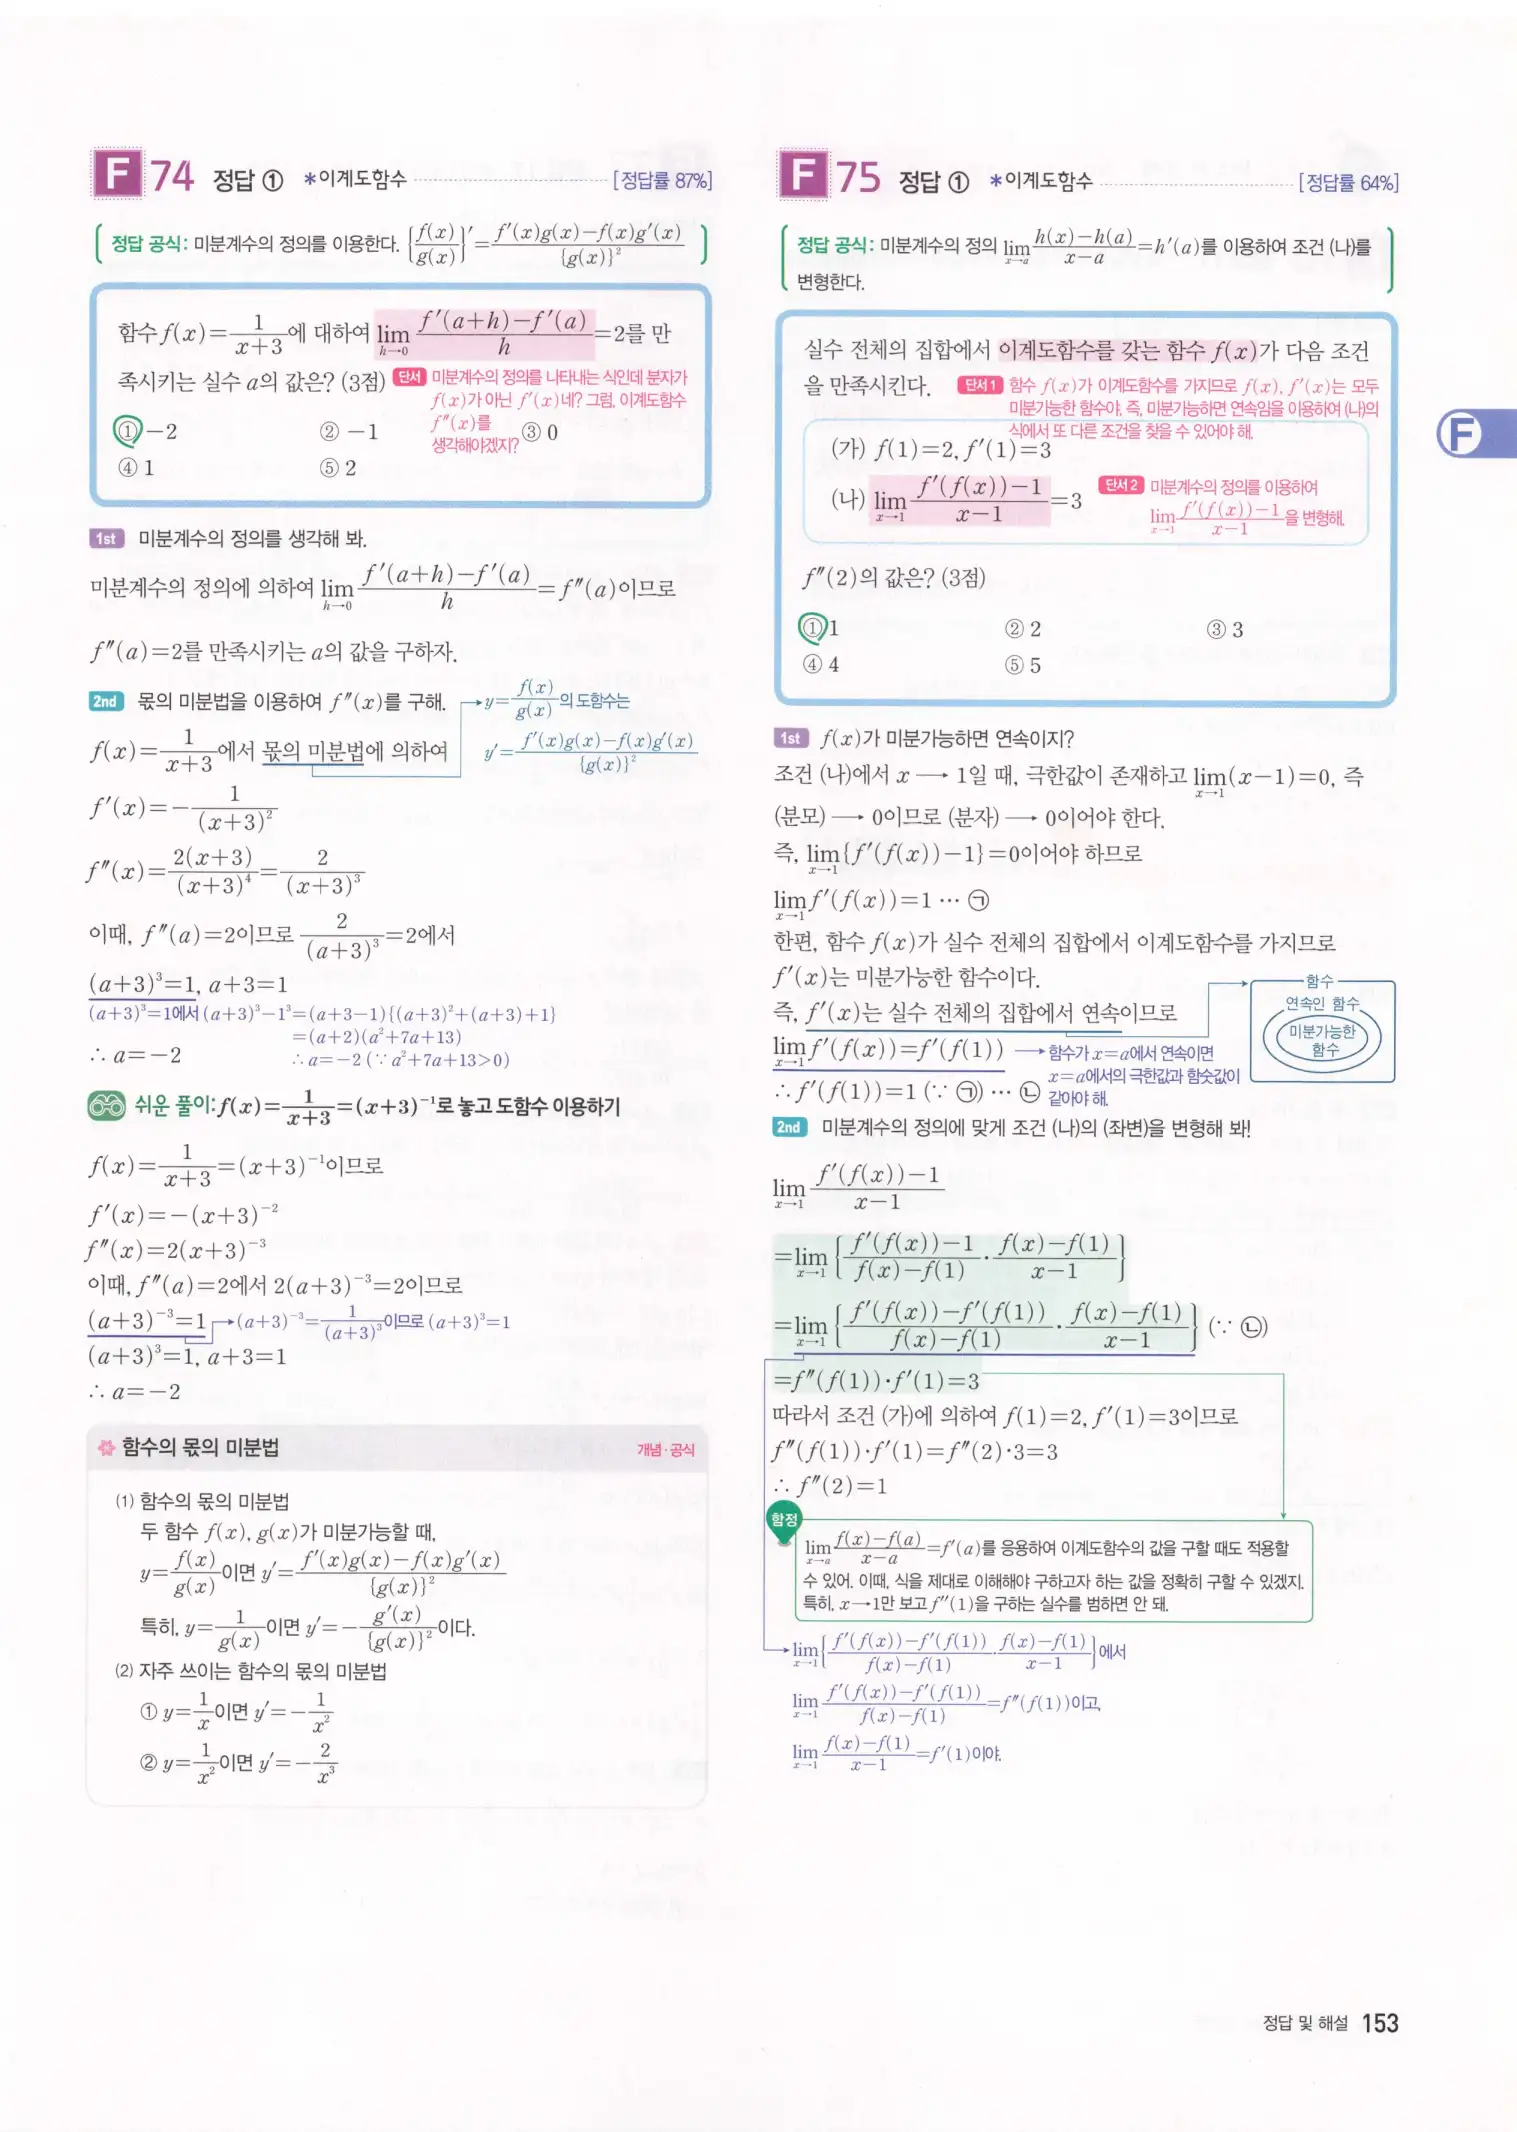 F 74 정답 ① *이계도함수 [정답률 87%]
정답 공식: 미분계수의 정의를 이용한다. {f(x)/g(x)}′=(f′(x)g(x)−f(x)g′(x))/{g(x)}²
함수 f(x)=1/(x+3)에 대하여 lim_{h→0} (f′(a+h)−f′(a))/h=2를 만
족시키는 실수 a의 값은? (3점) 단서 미분계수의 정의를 나타내는 식인데 분자가
f(x)가 아닌 f′(x)네? 그럼, 이계도함수
f″(x)를
생각해야겠지?
① −2 ② −1 ③ 0
④ 1 ⑤ 2
1st 미분계수의 정의를 생각해 봐.
미분계수의 정의에 의하여 lim_{h→0} (f′(a+h)−f′(a))/h=f″(a)이므로
f″(a)=2를 만족시키는 a의 값을 구하자.
2nd 몫의 미분법을 이용하여 f″(x)를 구해.
y=f(x)/g(x)의 도함수는
f(x)=1/(x+3)에서 몫의 미분법에 의하여
y′=(f′(x)g(x)−f(x)g′(x))/{g(x)}²
f′(x)=−1/(x+3)²
f″(x)=2(x+3)/(x+3)⁴=2/(x+3)³
이때, f″(a)=2이므로 2/(a+3)³=2에서
(a+3)³=1, a+3=1
(a+3)³=1에서 (a+3)³−1³=(a+3−1){(a+3)²+(a+3)+1}
=(a+2)(a²+7a+13)
∴ a=−2
∴ a=−2 (∵ a²+7a+13>0)
쉬운 풀이: f(x)=1/(x+3)=(x+3)⁻¹로 놓고 도함수 이용하기
f(x)=1/(x+3)=(x+3)⁻¹이므로
f′(x)=−(x+3)⁻²
f″(x)=2(x+3)⁻³
이때, f″(a)=2에서 2(a+3)⁻³=2이므로
(a+3)⁻³=1 → (a+3)⁻³=1/(a+3)³이므로 (a+3)³=1
(a+3)³=1, a+3=1
∴ a=−2
함수의 몫의 미분법 개념·공식
(1) 함수의 몫의 미분법
두 함수 f(x), g(x)가 미분가능할 때,
y=f(x)/g(x)이면 y′=(f′(x)g(x)−f(x)g′(x))/{g(x)}²
특히, y=1/g(x)이면 y′=−g′(x)/{g(x)}²이다.
(2) 자주 쓰이는 함수의 몫의 미분법
① y=1/x이면 y′=−1/x²
② y=1/x²이면 y′=−2/x³
F 75 정답 ① *이계도함수 [정답률 64%]
정답 공식: 미분계수의 정의 lim_{x→a} (h(x)−h(a))/(x−a)=h′(a)를 이용하여 조건 (나)를
변형한다.
실수 전체의 집합에서 이계도함수를 갖는 함수 f(x)가 다음 조건
을 만족시킨다. 단서1 함수 f(x)가 이계도함수를 가지므로 f(x), f′(x)는 모두
미분가능한 함수야. 즉, 미분가능하면 연속임을 이용하여 (나)의
식에서 또 다른 조건을 찾을 수 있어야 해.
(가) f(1)=2, f′(1)=3
(나) lim_{x→1} (f′(f(x))−1)/(x−1)=3
단서2 미분계수의 정의를 이용하여
lim_{x→1} (f′(f(x))−1)/(x−1)을 변형해.
f″(2)의 값은? (3점)
① 1 ② 2 ③ 3
④ 4 ⑤ 5
1st f(x)가 미분가능하면 연속이지?
조건 (나)에서 x → 1일 때, 극한값이 존재하고 lim_{x→1}(x−1)=0, 즉
(분모) → 0이므로 (분자) → 0이어야 한다.
즉, lim_{x→1}{f′(f(x))−1}=0이어야 하므로
lim_{x→1}f′(f(x))=1 ⋯ ㉠
한편, 함수 f(x)가 실수 전체의 집합에서 이계도함수를 가지므로
f′(x)는 미분가능한 함수이다.
즉, f′(x)는 실수 전체의 집합에서 연속이므로
함수
연속인 함수
미분가능한
함수
lim_{x→1}f′(f(x))=f′(f(1)) → 함수가 x=a에서 연속이면
x=a에서의 극한값과 함숫값이
같아야 해.
∴ f′(f(1))=1 (∵ ㉠) ⋯ ㉡
2nd 미분계수의 정의에 맞게 조건 (나)의 (좌변)을 변형해 봐!
lim_{x→1} (f′(f(x))−1)/(x−1)
=lim_{x→1} {(f′(f(x))−1)/(f(x)−f(1))·(f(x)−f(1))/(x−1)}
=lim_{x→1} {(f′(f(x))−f′(f(1)))/(f(x)−f(1))·(f(x)−f(1))/(x−1)} (∵ ㉡)
=f″(f(1))·f′(1)=3
따라서 조건 (가)에 의하여 f(1)=2, f′(1)=3이므로
f″(f(1))·f′(1)=f″(2)·3=3
∴ f″(2)=1
함정
lim_{x→a} (f(x)−f(a))/(x−a)=f′(a)를 응용하여 이계도함수의 값을 구할 때도 적용할
수 있어. 이때, 식을 제대로 이해해야 구하고자 하는 값을 정확히 구할 수 있겠지.
특히, x→1만 보고 f″(1)을 구하는 실수를 범하면 안 돼.
lim_{x→1} {(f′(f(x))−f′(f(1)))/(f(x)−f(1))·(f(x)−f(1))/(x−1)}에서
lim_{x→1} (f′(f(x))−f′(f(1)))/(f(x)−f(1))=f″(f(1))이고,
lim_{x→1} (f(x)−f(1))/(x−1)=f′(1)이야.
F
정답 및 해설 153